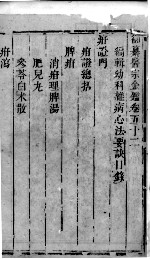 御纂醫宗金鑑卷五十二
編輯幼科雜病心法要訣目錄
疳證門
疳證總括
脾疳
消疳理脾湯
肥兒丸
參苓白术散
疳瀉